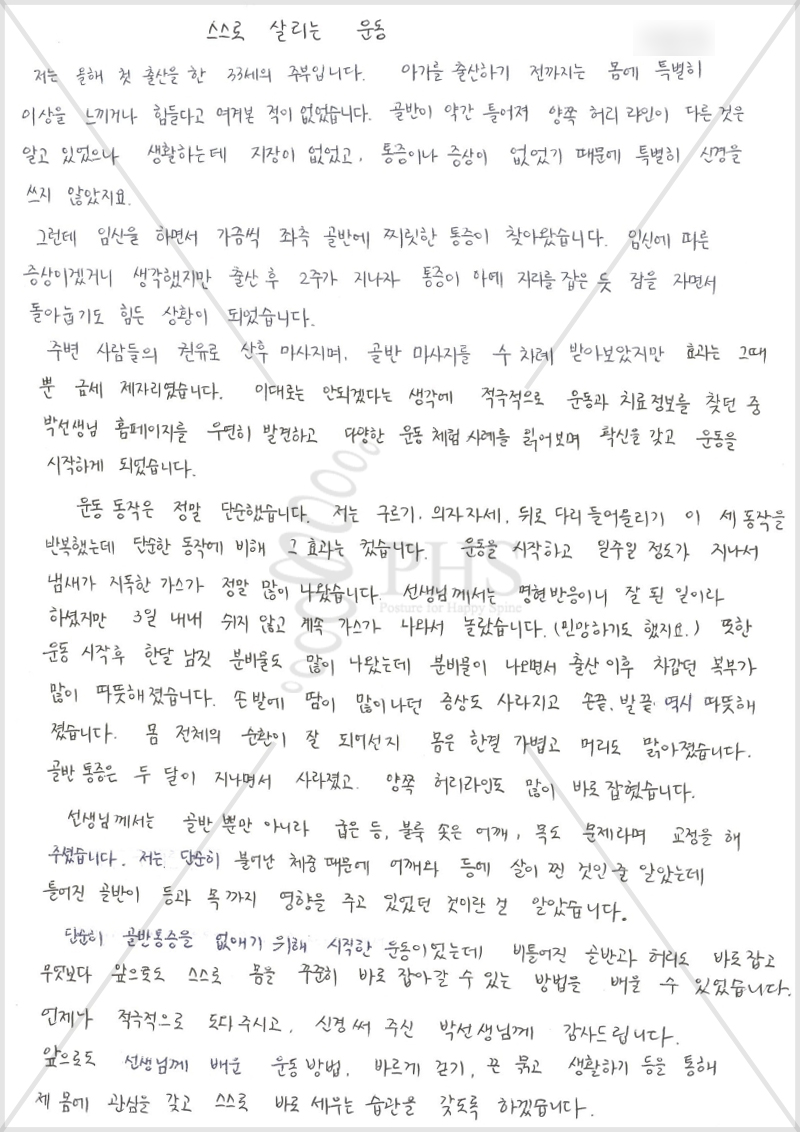 스스로 살리는 운동
저는 올해 첫 출산을 한 33세의 주부입니다. 아가를 출산하기 전까지는 몸에 특별히
이상을 느끼거나 힘들다고 여겨본 적이 없었습니다. 골반이 약간 틀어져 양쪽 허리 라인이 다른 것은
알고 있었으나 생활하는데 지장이 없었고, 통증이나 증상이 없었기 때문에 특별히 신경을
쓰지 않았지요.
그런데 임신을 하면서 가끔씩 좌측 골반에 찌릿한 통증이 찾아왔습니다. 임신에 따른
증상이겠거니 생각했지만 출산 후 2주가 지나자 통증이 아예 자리를 잡은 듯 잠을 자면서
돌아눕기도 힘든 상황이 되었습니다.
주변 사람들의 권유로 산후 마사지며, 골반 마사지를 수 차례 받아보았지만 효과는 그때
뿐 금세 제자리였습니다. 이대로는 안되겠다는 생각에 적극적으로 운동과 치료정보를 찾던 중
박선생님 홈페이지를 우연히 발견하고 다양한 운동 체험 사례를 읽어보며 확신을 갖고 운동을
시작하게 되었습니다.
운동 동작은 정말 단순했습니다. 저는 구르기, 의자자세, 뒤로 다리 들어올리기 이 세 동작을
반복했는데 단순한 동작에 비해 그 효과는 컸습니다. 운동을 시작하고 일주일 정도가 지나서
냄새가 지독한 가스가 정말 많이 나왔습니다. 선생님께서는 명현반응이니 잘 된 일이라
하셨지만 3일 내내 쉬지 않고 계속 가스가 나와서 놀랐습니다. (민망하기도 했지요.) 또한
운동 시작 후 한달 남짓 분비물도 많이 나왔는데 분비물이 나오면서 출산 이후 차갑던 복부가
많이 따뜻해졌습니다. 손발에 땀이 많이나던 증상도 사라지고 손끝, 발끝 역시 따뜻해
졌습니다. 몸 전체의 순환이 잘 되어선지 몸은 한결 가볍고 머리도 맑아졌습니다.
골반 통증은 두 달이 지나면서 사라졌고 양쪽 허리라인도 많이 바로 잡혔습니다.
선생님께서는 골반 뿐만 아니라 굽은 등, 불룩 솟은 어깨, 목도 문제라며 교정을 해
주셨습니다. 저는 단순히 불어난 체중 때문에 어깨와 등에 살이 찐 것인 줄 알았는데
틀어진 골반이 등과 목까지 영향을 주고 있었던 것이란 걸 알았습니다.
단순히 골반통증을 없애기 위해 시작한 운동이었는데 비틀어진 골반과 허리도 바로잡고
무엇보다 앞으로도 스스로 몸을 꾸준히 바로 잡아갈 수 있는 방법을 배울 수 있었습니다.
언제나 적극적으로 도와주시고, 신경써 주신 박선생님께 감사드립니다.
앞으로도 선생님께 배운 운동방법, 바르게 걷기, 끈 묶고 생활하기 등을 통해
제 몸에 관심을 갖고 스스로 바로 세우는 습관을 갖도록 하겠습니다.
PHS
Posture for Happy Spine